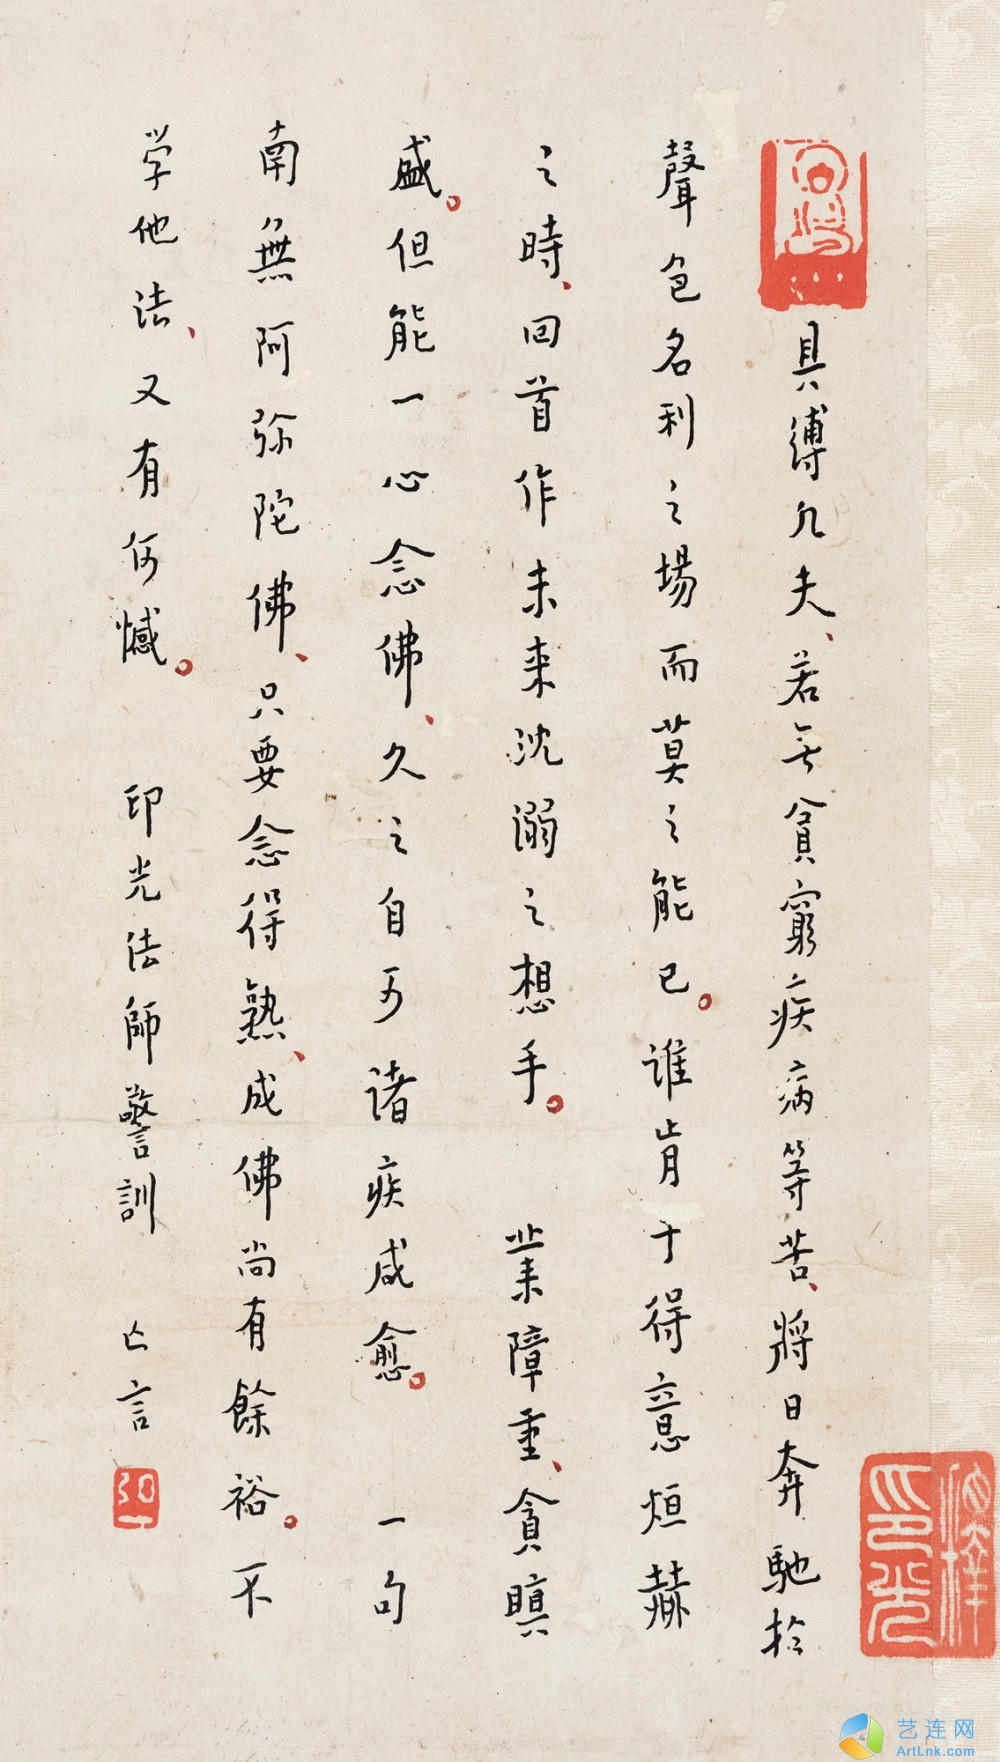 具缚凡夫、若无貪窮疾病等苦、將日奔馳於
聲色名利之場而莫之能已。谁肯于得意烜赫
之時、回首作未来沈溺之想乎。 業障重、貪瞋
盛。但能一心念佛、久之自可诸疾咸愈。 一句
南無阿弥陀佛、只要念得熟、成佛尚有餘裕。不
学他法、又有何憾。 印光法師警訓 亡言
弘一
印光
艺连网
ArtLnk.com